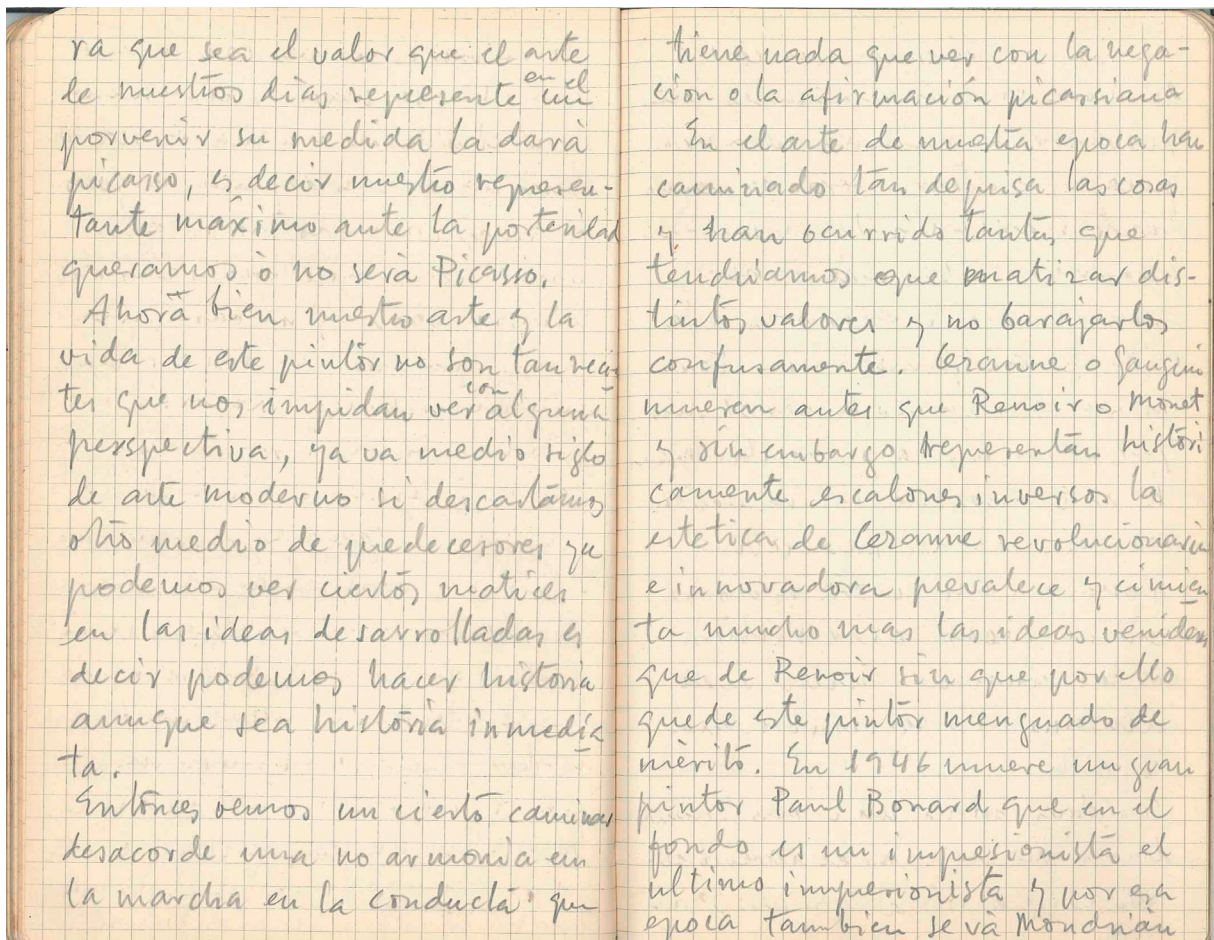 ra que sea el valor que el arte
de nuestros dias represente en el
porvenir su medida la dará
picasso, es decir nuestro represen-
tante máximo ante la posterilad
queramos ò no serà Picasso.
Ahora bien nuestro arte y la
vida de este pintor no son tan recien
tes que nos impidan ver con alguna
perspectiva, ya va medio siglo
de arte moderno si descartamos
otro medio de predecesores ya
podemos ver ciertos matices
en las ideas desarrolladas es
decir podemos hacer historia
aunque sea história inmedia
ta.
Entonces vemos un cierto caminar
desacorde una no armonia en
la marcha en la conducta que
tiene nada que ver con la nega-
ción o la afirmación picassiana
En el arte de nuestra epoca han
caminado tan deprisa las cosas
y han ocurrido tantas que
tendriamos que matizar dis-
tintos valores y no barajarlos
confusamente. Cezanne o Gauguin
mueren antes que Renoir o Monet
y sin embargo representan históri
camente escalones inversos la
estetica de Cezanne revolucionaria
e innovadora prevalece y cimien
ta mucho mas las ideas venideras
que de Renoir sin que por ello
quede este pintor menguado de
mèrito. En 1946 muere un gran
pintor Paul Bonard que en el
fondo es un impresionista el
ultimo impresionista y por esa
epoca tambien se và Mondrián